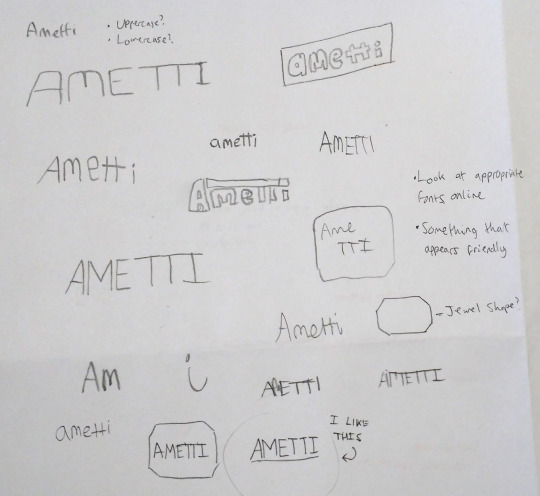 Ametti
• Uppercase?
• Lowercase?
AMETTI
ametti
ametti
AMETTI
Ametti
Ametti
• Look at appropriate
fonts online
• Something that
appears friendly
Ame
TTI
AMETTI
Ametti
- Jewel Shape?
Am
i
AMETTI
AMETTI
ametti
AMETTI
AMETTI
I LIKE
THIS